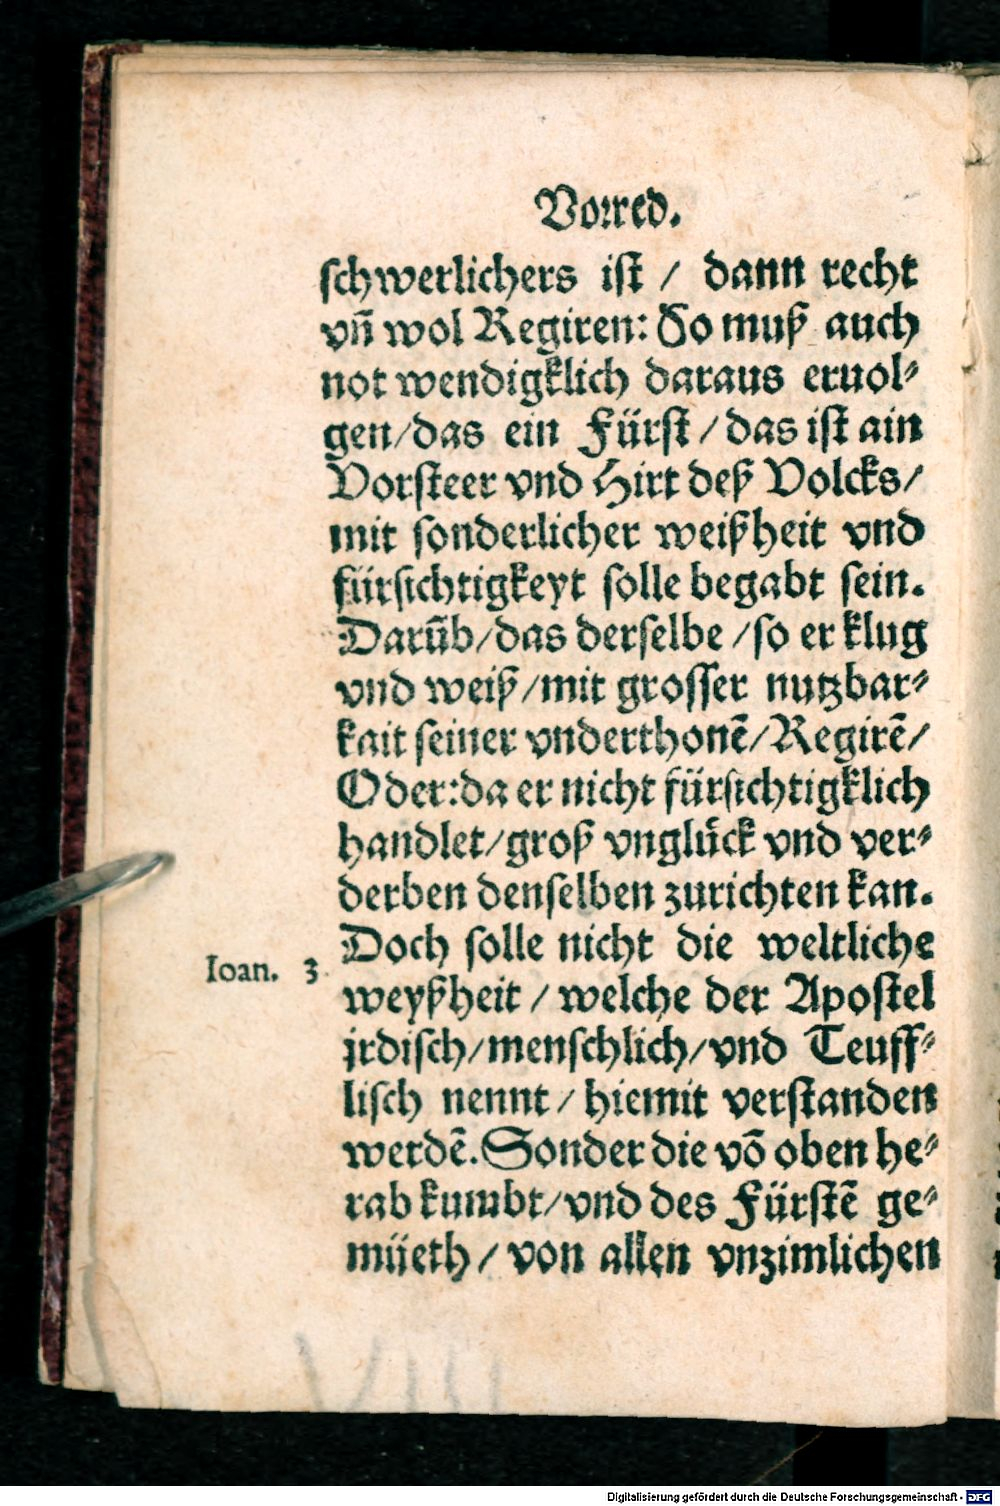 Vorred.
schwerlichers ist / dann recht
vñ wol Regiren: So muß auch
not wendigklich daraus eruol⸗
gen/das ein Fürst/das ist ain
Vorsteer vnd Hirt deß Volcks/
mit sonderlicher weißheit vnd
fürsichtigkeyt solle begabt sein.
Darũb/das derselbe /so er klug
vnd weiß/mit grosser nutzbar⸗
kait seiner vnderthonẽ/Regirẽ/
Oder:da er nicht fürsichtigklich
handlet/groß vnglück vnd ver⸗
derben denselben zurichten kan.
Doch solle nicht die weltliche
Ioan. 3
weyßheit / welche der Apostel
jrdisch/menschlich/vnd Teuff⸗
lisch nennt / hiemit verstanden
werdẽ. Sonder die võ oben he⸗
rab kumbt/vnd des Fürstẽ ge⸗
müeth / von allen vnzimlichen
Digitalisierung gefördert durch die Deutsche Forschungsgemeinschaft - DFG